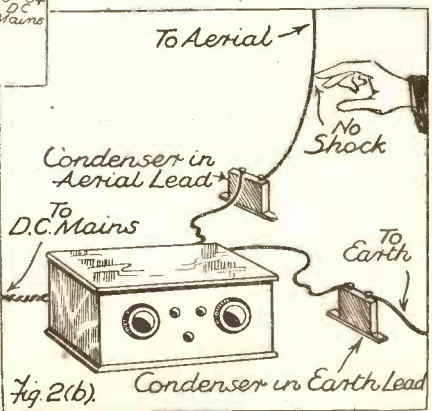 D.C.
Mains
To Aerial
No
Shock
Condenser in
Aerial Lead
To
D.C. Mains
To
Earth
Fig. 2(b).
Condenser in Earth Lead